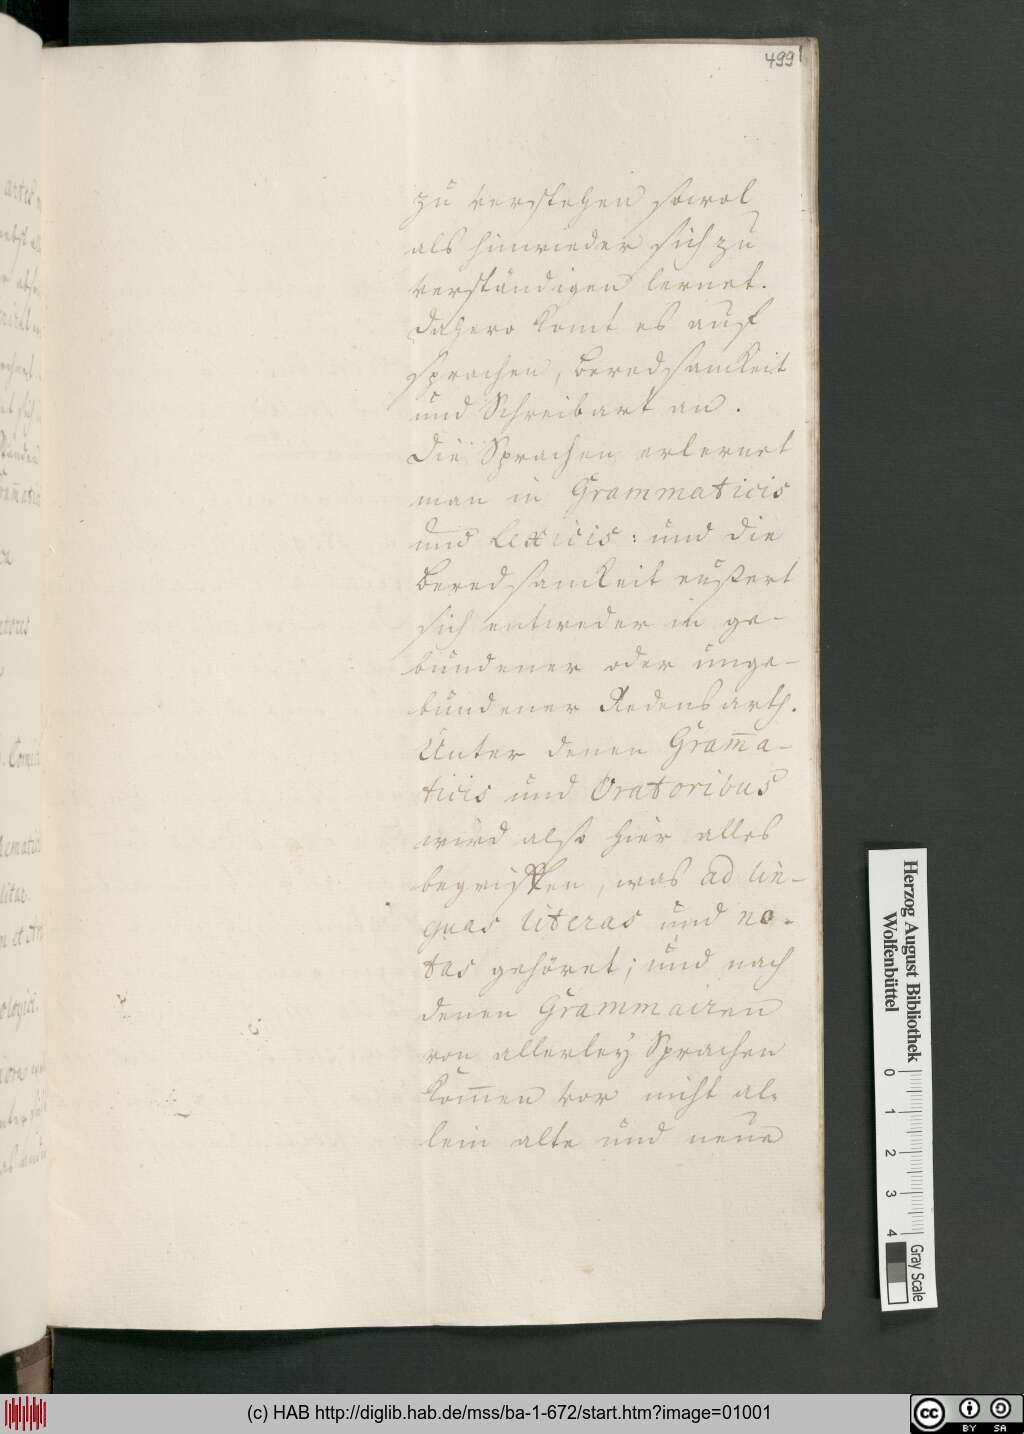 499
zu verstehen sowol
als hinwieder sich zu
verständigen lernet.
Dahero komt es auf
sprachen, beredsamkeit
und Schreibart an.
Die Sprachen erlernet
man in Grammaticis
und Lexicis: und die
beredsamkeit eußert
sich entweder in ge-
bundener oder unge-
bundener Redensarth.
Unter denen Gram̄a-
ticis und Oratoribus
wird also hier alles
begriffen, was ad lin-
guas literas und no-
tas gehöret; und nach
denen Grammairen
von allerley Sprachen
kom̄en vor nicht al-
lein alte und neue
Herzog August Bibliothek
Wolfenbüttel
0 1 2 3 4
Gray Scale
(c) HAB http://diglib.hab.de/mss/ba-1-672/start.htm?image=01001
cc BY SA